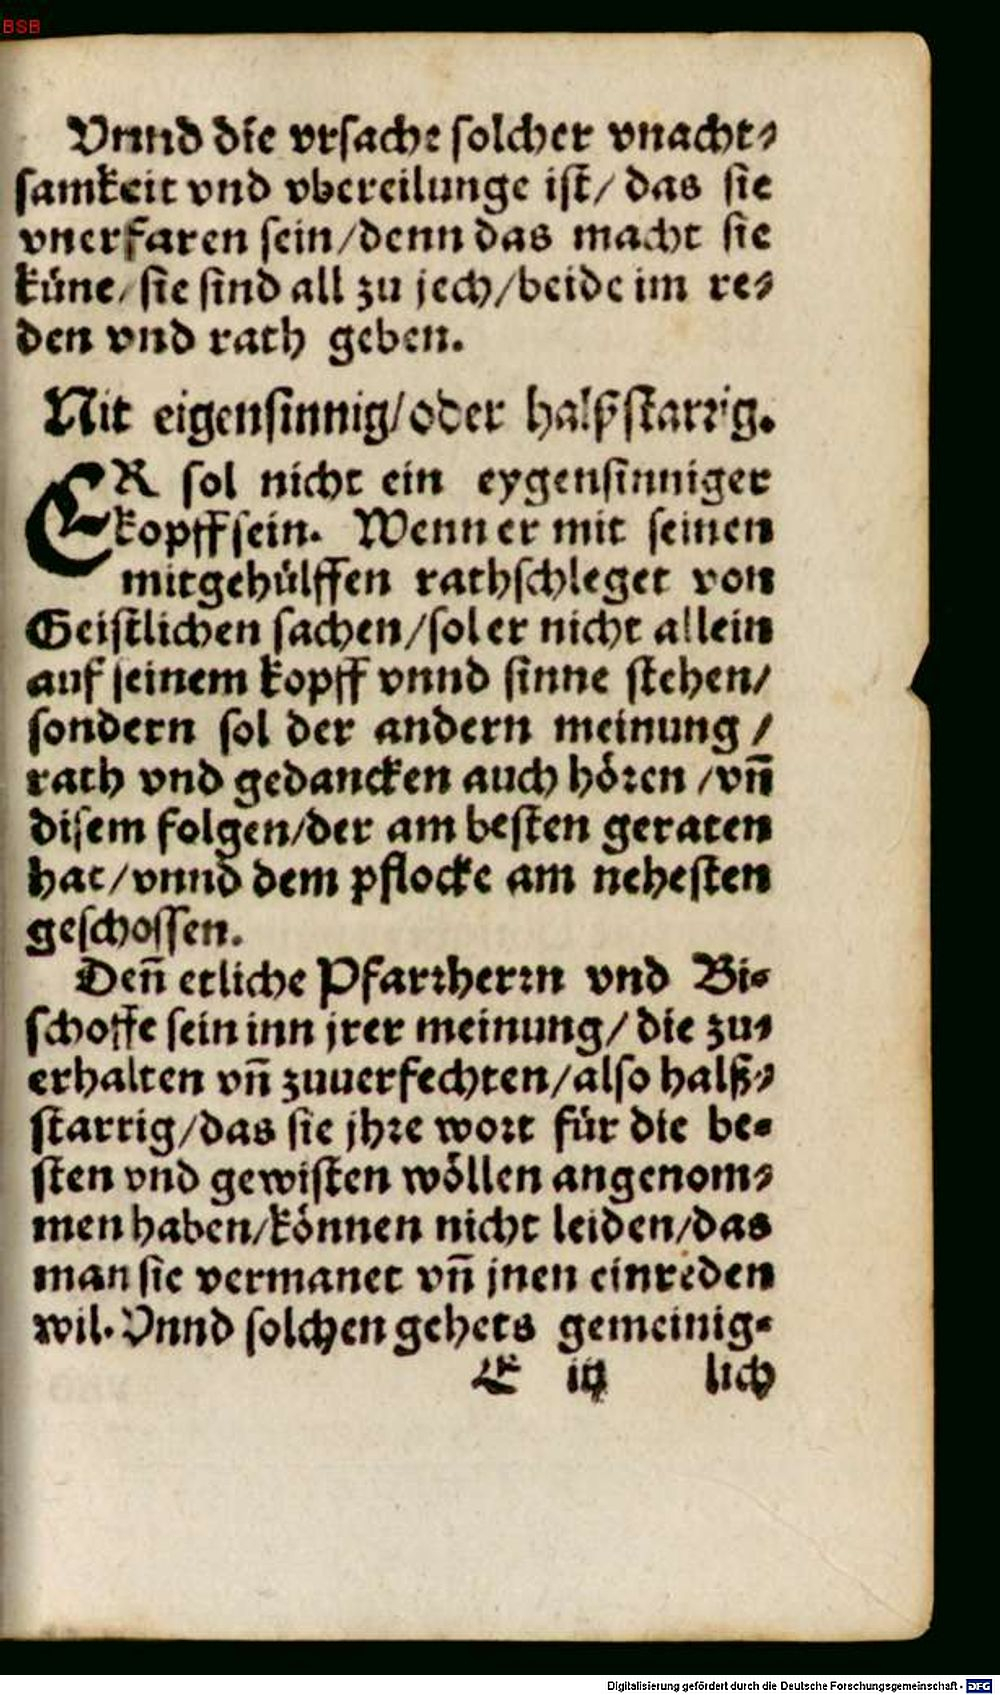 BSB
Vnnd die vrsache solcher vnacht⸗
samkeit vnd vbereilunge ist/ das sie
vnerfaren sein/denn das macht sie
küne/sie sind all zu jech/beide im re⸗
den vnd rath geben.
Nit eigensinnig/oder halßstarrig.
ER sol nicht ein eygensinniger
kopff sein. Wenn er mit seinen
mitgehülffen rathschleget von
Geistlichen sachen/sol er nicht allein
auf seinem kopff vnnd sinne stehen/
sondern sol der andern meinung /
rath vnd gedancken auch hören /vñ
disem folgen/der am besten geraten
hat/vnnd dem pflocke am nehesten
geschossen.
Deñ etliche Pfarrherrn vnd Bi⸗
schoffe sein inn jrer meinung/ die zu⸗
erhalten vñ zuuerfechten/also halß⸗
starrig/das sie jhre wort für die be⸗
sten vnd gewisten wöllen angenom⸗
men haben/können nicht leiden/das
man sie vermanet vñ jnen einreden
wil. Vnnd solchen gehets gemeinig⸗
E iij lich
Digitalisierung gefördert durch die Deutsche Forschungsgemeinschaft - DFG